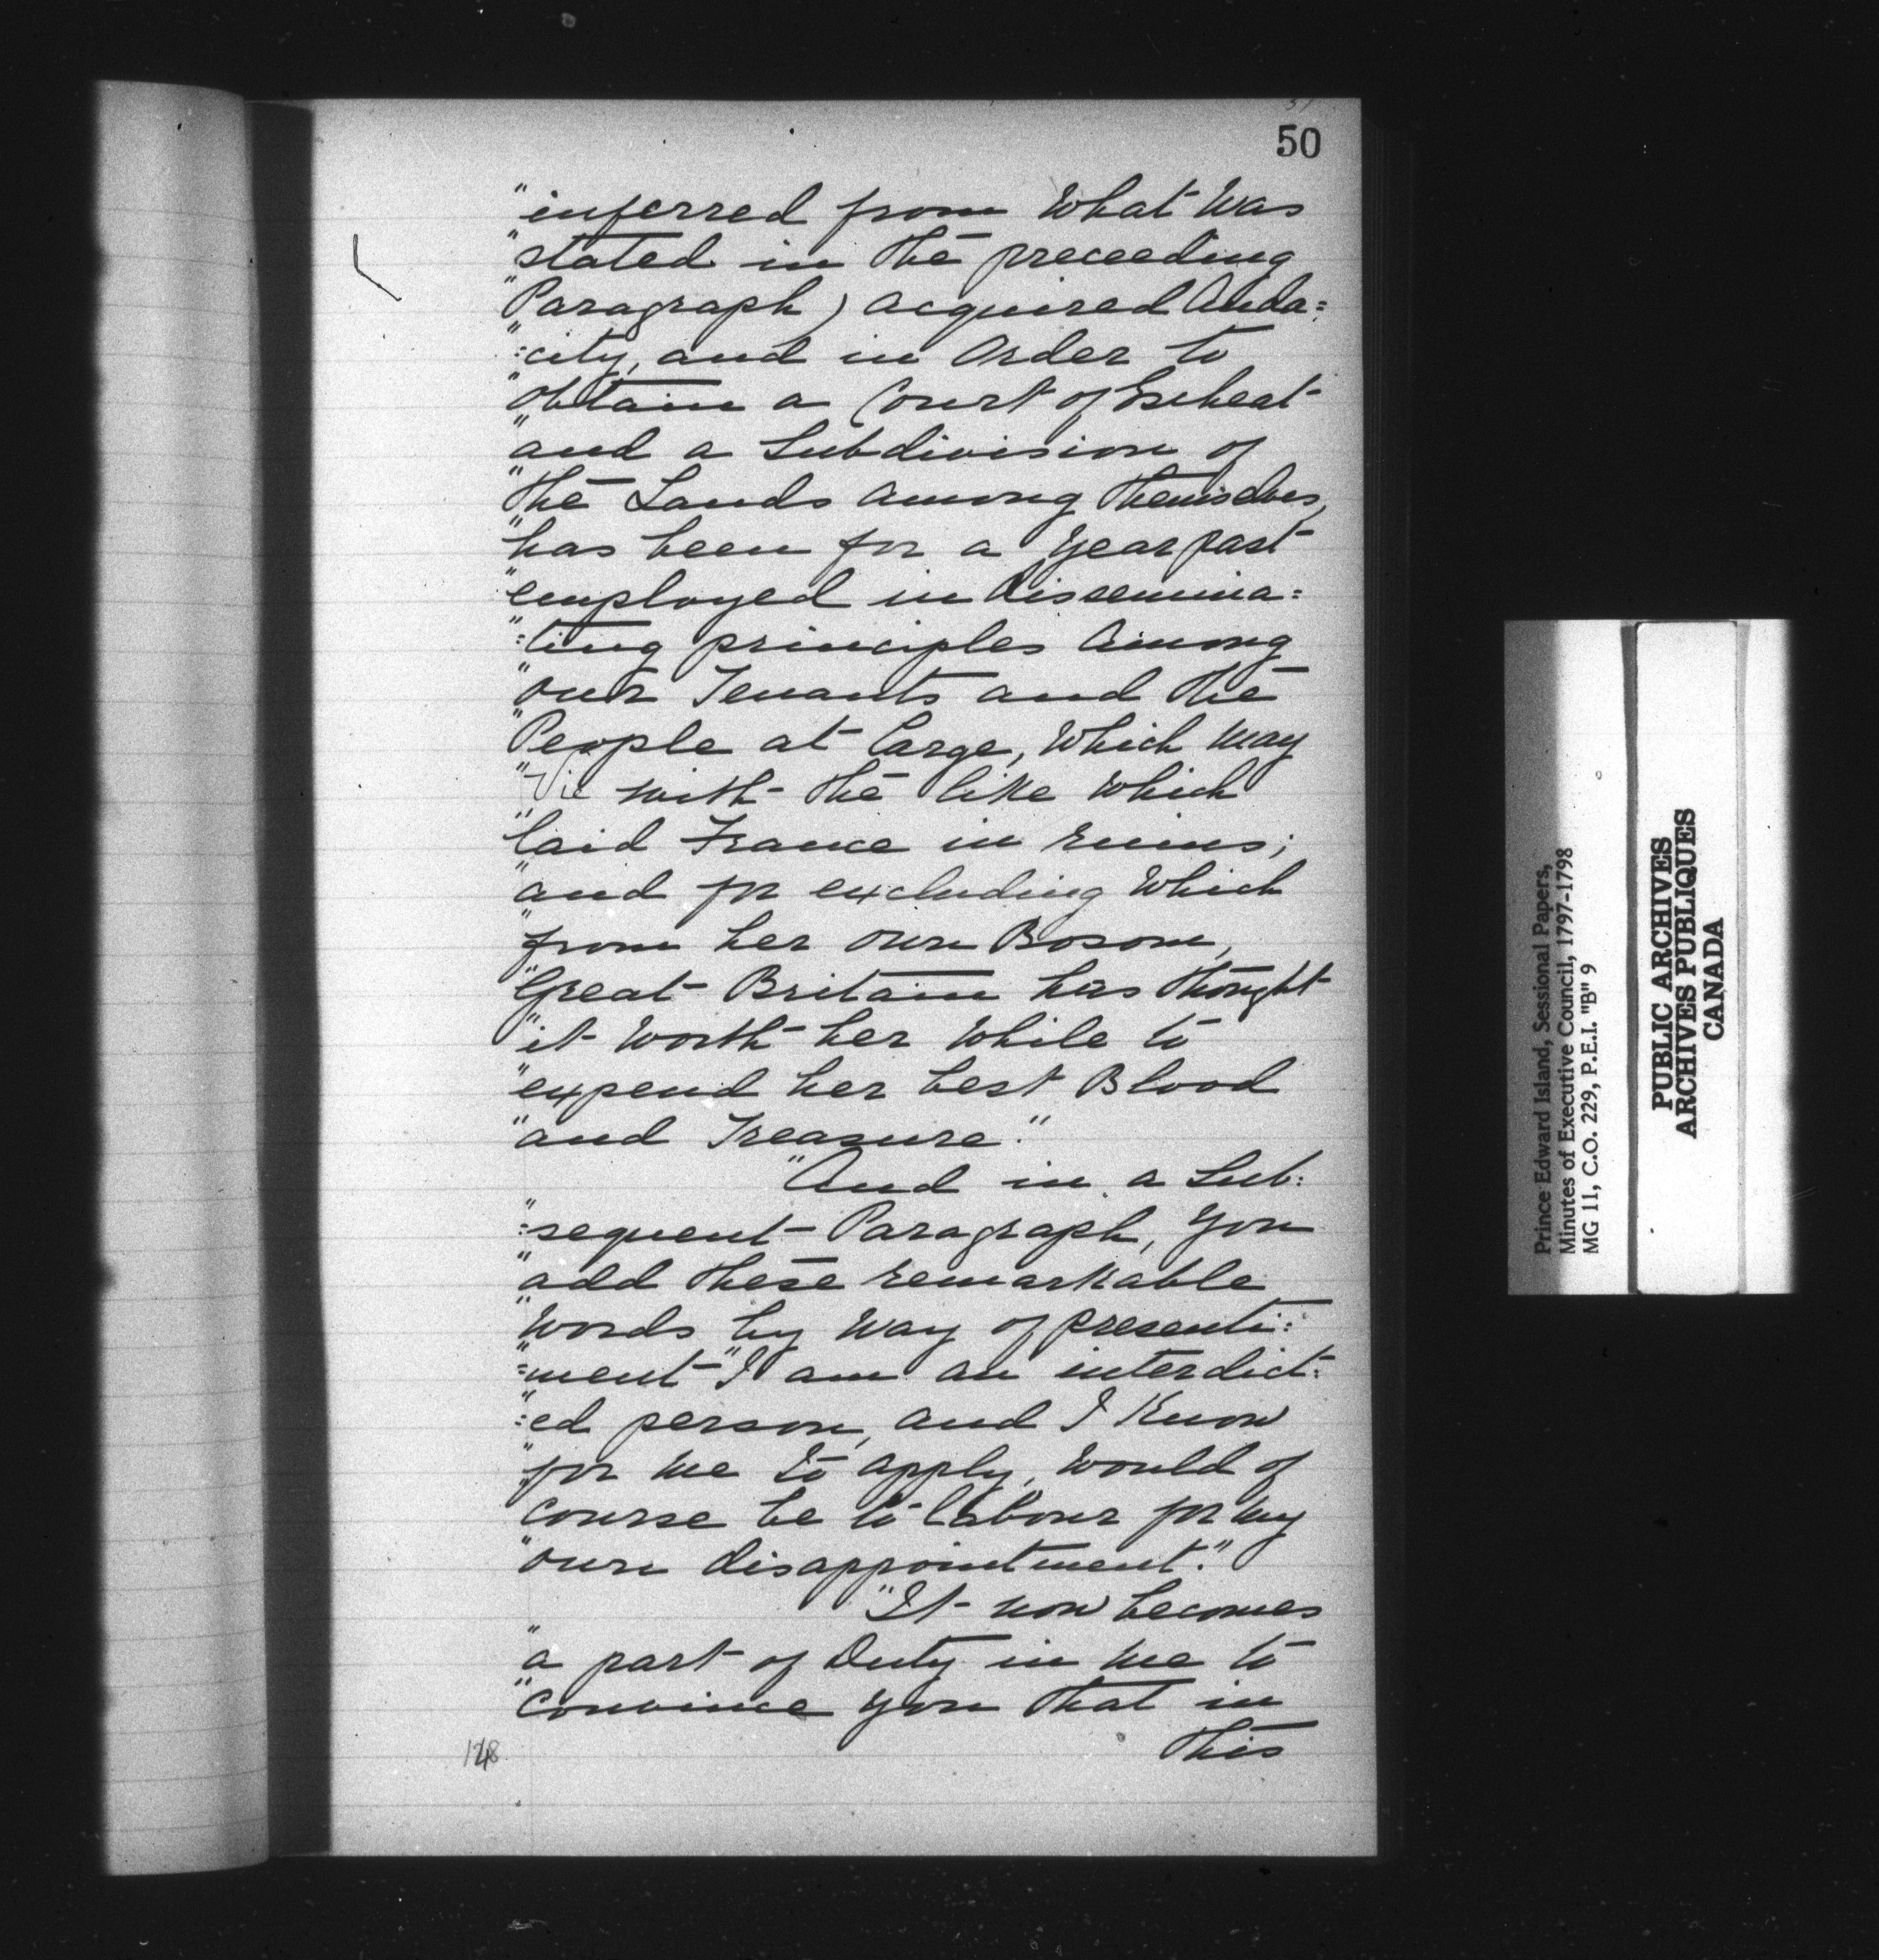 50
"inferred from What Was
"stated in the preceeding
"Paragraph) acquired Auda=
"=city, and in Order to
"obtain a Court of Escheat
"and a Subdivision of
"the Lands among themselves,
"has been for a Year past
"employed in dissemina=
"=ting principles among
"our Tenants and the
"People at large, Which may
"Vie with the like which
"laid France in ruins;
"and for excluding Which
"from her own Bosom,
"Great Britain has thought
"it Worth her While to
"expend her best Blood
"and Treasure."
"And in a Sub=
"=sequent Paragraph, You
"add these remarkable
"Words by Way of presenti=
"=ment "I am an interdict=
"=ed person, and I Know
"for me to apply, Would of
course be to labour for my
"own disappointment."
"It now becomes
"a part of Duty in me to
"Convince you that in
this
148
Prince Edward Island, Sessional Papers,
Minutes of Executive Council, 1797-1798
MG 11, C.O. 229, P.E.I. "B" 9
PUBLIC ARCHIVES
ARCHIVES PUBLIQUES
CANADA